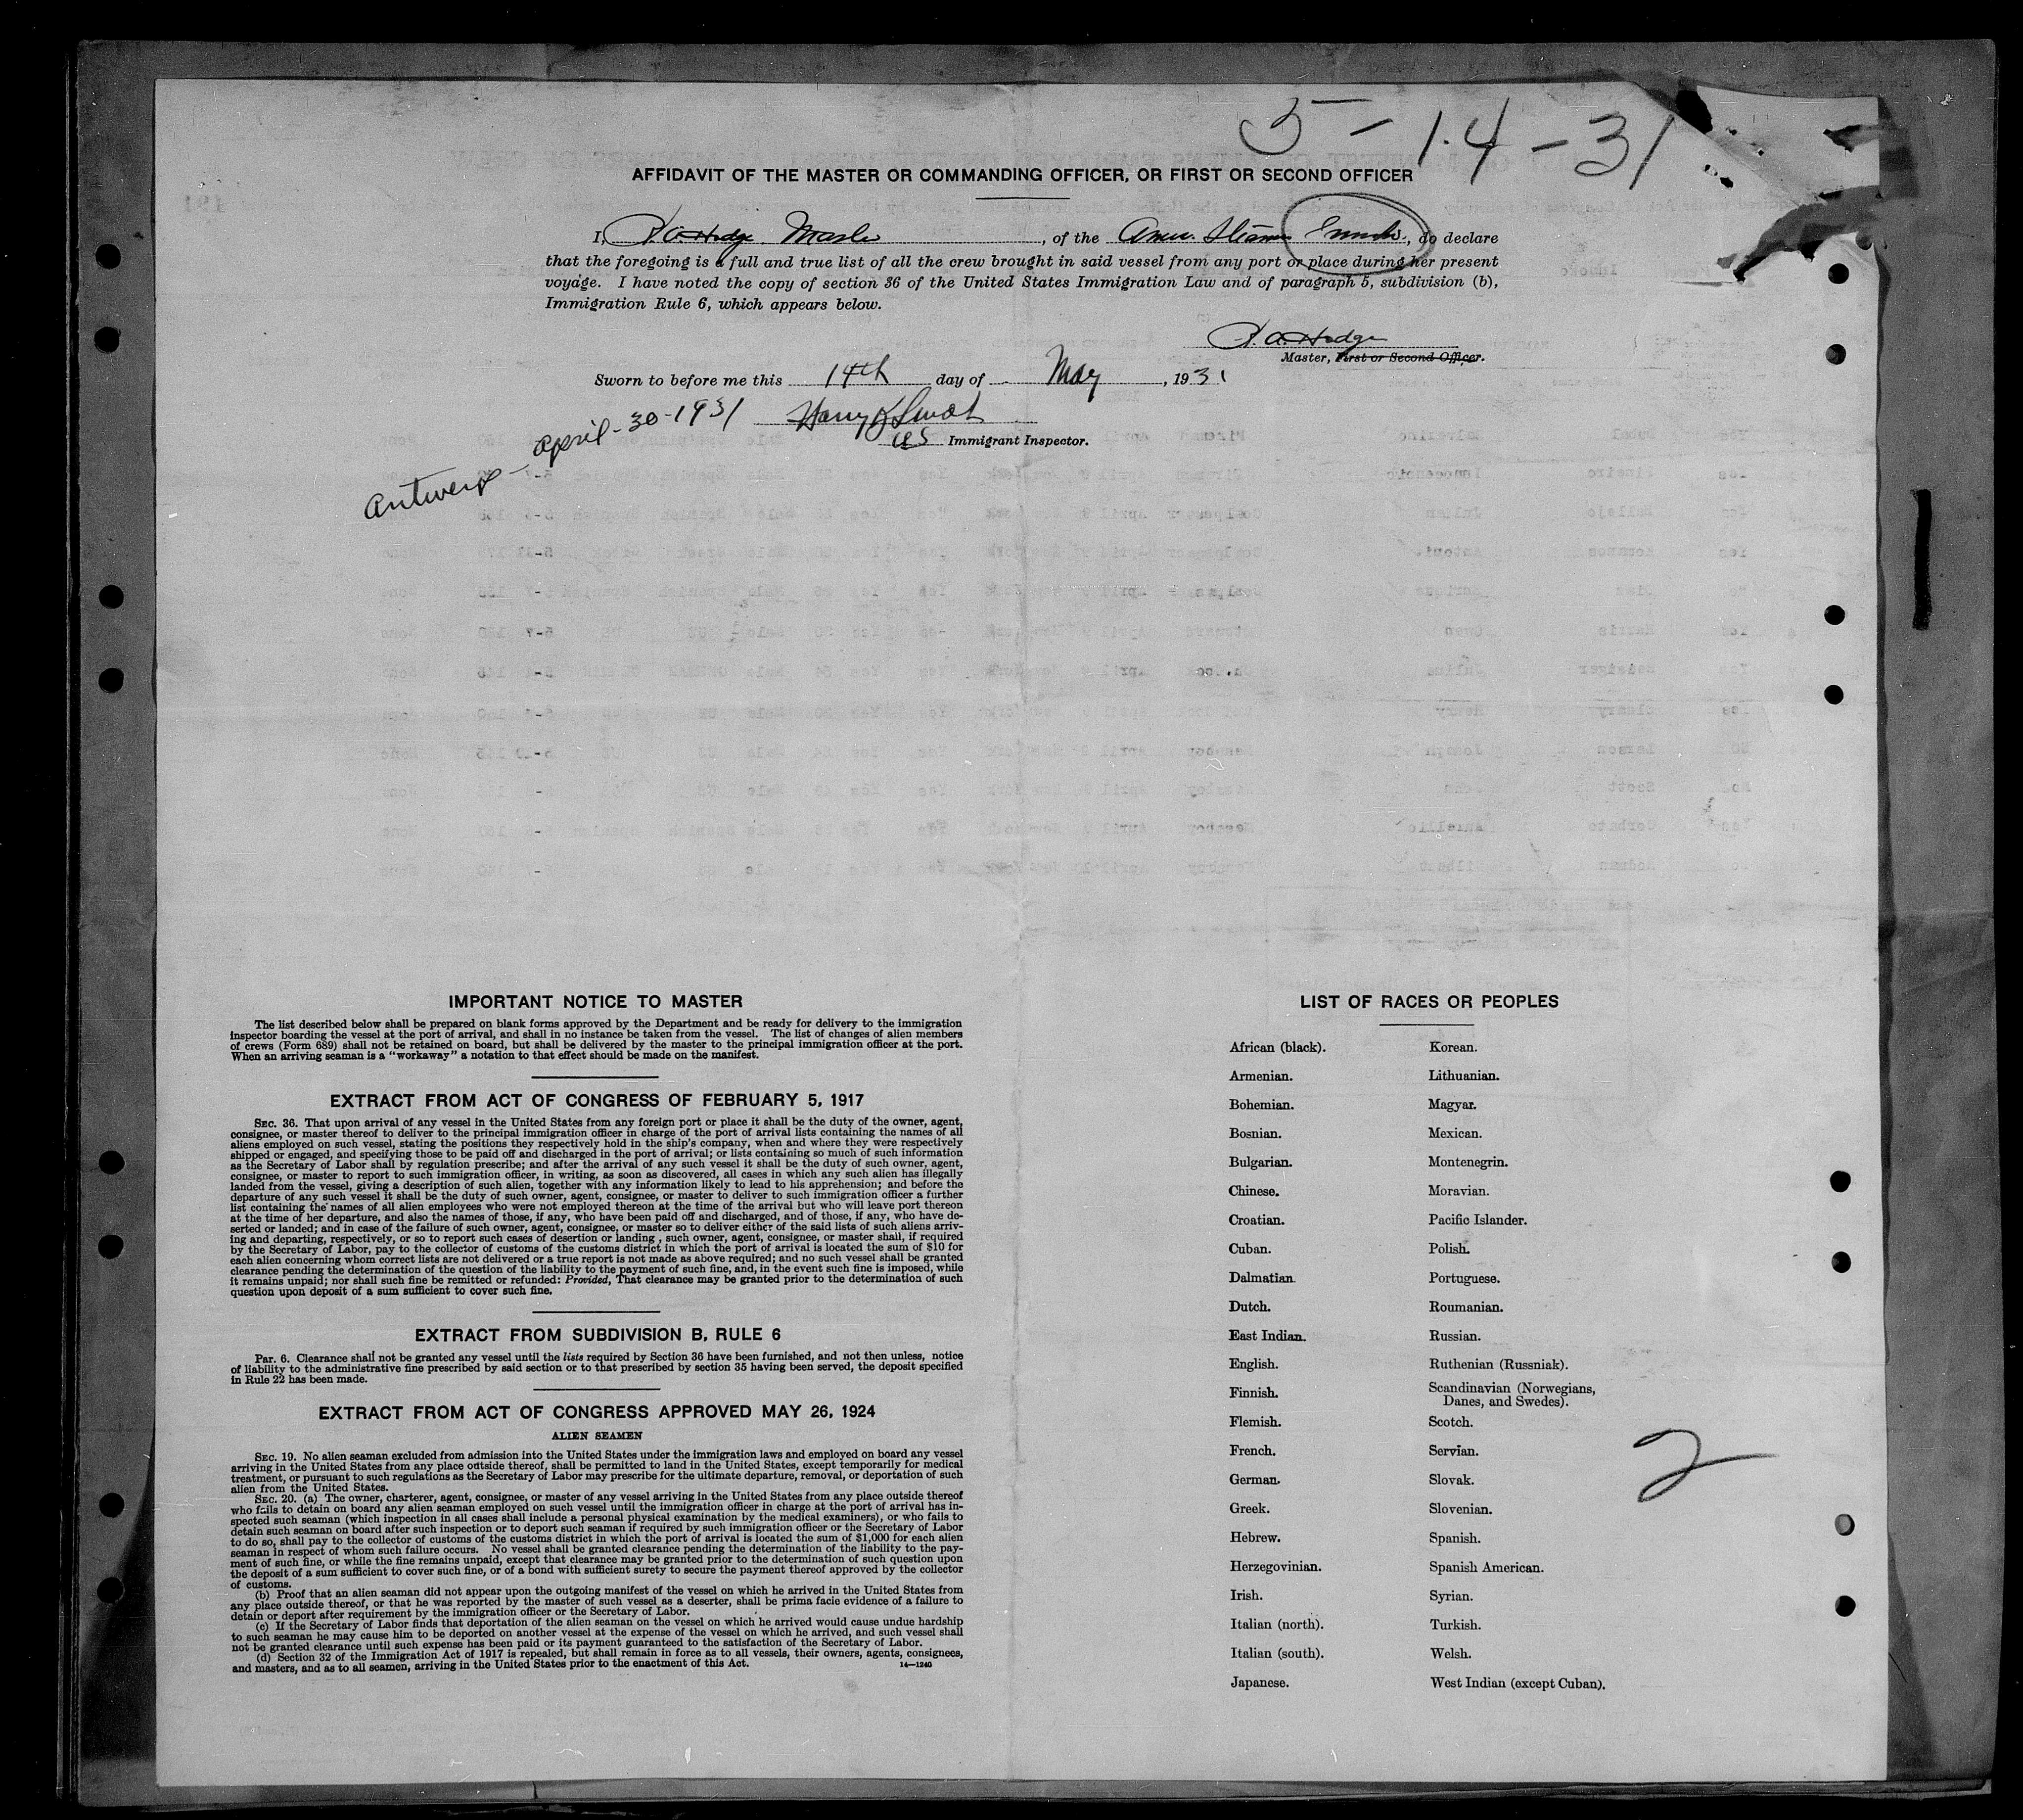 5-14-31
AFFIDAVIT OF THE MASTER OR COMMANDING OFFICER, OR FIRST OR SECOND OFFICER
I, Hodge Master, of the Amer. Steamer, do declare
that the foregoing is a full and true list of all the crew brought in said vessel from any port or place during her present
voyage. I have noted the copy of section 36 of the United States Immigration Law and of paragraph 5, subdivision (b),
Immigration Rule 6, which appears below.
A. Hodge
Master, First or Second Officer.
Sworn to before me this 14th day of May, 1931
Harry
US Immigrant Inspector.
Antwerp - April-30-1931
IMPORTANT NOTICE TO MASTER
The list described below shall be prepared on blank forms approved by the Department and be ready for delivery to the immigration
inspector boarding the vessel at the port of arrival, and shall in no instance be taken from the vessel. The list of changes of alien members
of crews (Form 689) shall not be retained on board, but shall be delivered by the master to the principal immigration officer at the port.
When an arriving seaman is a "workaway" a notation to that effect should be made on the manifest.
EXTRACT FROM ACT OF CONGRESS OF FEBRUARY 5, 1917
SEC. 36. That upon arrival of any vessel in the United States from any foreign port or place it shall be the duty of the owner, agent,
consignee, or master thereof to deliver to the principal immigration officer in charge of the port of arrival lists containing the names of all
aliens employed on such vessel, stating the positions they respectively hold in the ship's company, when and where they were respectively
shipped or engaged, and specifying those to be paid off and discharged in the port of arrival; or lists containing so much of such information
as the Secretary of Labor shall by regulation prescribe; and after the arrival of any such vessel it shall be the duty of such owner, agent,
consignee, or master to report to such immigration officer, in writing, as soon as discovered, all cases in which any such alien has illegally
landed from the vessel, giving a description of such alien, together with any information likely to lead to his apprehension; and before the
departure of any such vessel it shall be the duty of such owner, agent, consignee, or master to deliver to such immigration officer a further
list containing the names of all alien employees who were not employed thereon at the time of the arrival but who will leave port thereon
at the time of her departure, and also the names of those, if any, who have been paid off and discharged, and of those, if any, who have de-
serted or landed; and in case of the failure of such owner, agent, consignee, or master so to deliver either of the said lists of such aliens arriv-
ing and departing, respectively, or so to report such cases of desertion or landing , such owner, agent, consignee, or master shall, if required
by the Secretary of Labor, pay to the collector of customs of the customs district in which the port of arrival is located the sum of $10 for
each alien concerning whom correct lists are not delivered or a true report is not made as above required; and no such vessel shall be granted
clearance pending the determination of the question of the liability to the payment of such fine, and, in the event such fine is imposed, while
it remains unpaid; nor shall such fine be remitted or refunded: Provided, That clearance may be granted prior to the determination of such
question upon deposit of a sum sufficient to cover such fine.
EXTRACT FROM SUBDIVISION B, RULE 6
Par. 6. Clearance shall not be granted any vessel until the lists required by Section 36 have been furnished, and not then unless, notice
of liability to the administrative fine prescribed by said section or to that prescribed by section 35 having been served, the deposit specified
in Rule 22 has been made.
EXTRACT FROM ACT OF CONGRESS APPROVED MAY 26, 1924
ALIEN SEAMEN
SEC. 19. No alien seaman excluded from admission into the United States under the immigration laws and employed on board any vessel
arriving in the United States from any place outside thereof, shall be permitted to land in the United States, except temporarily for medical
treatment, or pursuant to such regulations as the Secretary of Labor may prescribe for the ultimate departure, removal, or deportation of such
alien from the United States.
SEC. 20. (a) The owner, charterer, agent, consignee, or master of any vessel arriving in the United States from any place outside thereof
who fails to detain on board any alien seaman employed on such vessel until the immigration officer in charge at the port of arrival has in-
spected such seaman (which inspection in all cases shall include a personal physical examination by the medical examiners), or who fails to
detain such seaman on board after such inspection or to deport such seaman if required by such immigration officer or the Secretary of Labor
to do so, shall pay to the collector of customs of the customs district in which the port of arrival is located the sum of $1,000 for each alien
seaman in respect of whom such failure occurs. No vessel shall be granted clearance pending the determination of the liability to the pay-
ment of such fine, or while the fine remains unpaid, except that clearance may be granted prior to the determination of such question upon
the deposit of a sum sufficient to cover such fine, or of a bond with sufficient surety to secure the payment thereof approved by the collector
of customs.
(b) Proof that an alien seaman did not appear upon the outgoing manifest of the vessel on which he arrived in the United States from
any place outside thereof, or that he was reported by the master of such vessel as a deserter, shall be prima facie evidence of a failure to
detain or deport after requirement by the immigration officer or the Secretary of Labor.
(c) If the Secretary of Labor finds that deportation of the alien seaman on the vessel on which he arrived would cause undue hardship
to such seaman he may cause him to be deported on another vessel at the expense of the vessel on which he arrived, and such vessel shall
not be granted clearance until such expense has been paid or its payment guaranteed to the satisfaction of the Secretary of Labor.
(d) Section 32 of the Immigration Act of 1917 is repealed, but shall remain in force as to all vessels, their owners, agents, consignees,
and masters, and as to all seamen, arriving in the United States prior to the enactment of this Act.
14—1240
LIST OF RACES OR PEOPLES
African (black). Korean.
Armenian. Lithuanian.
Bohemian. Magyar.
Bosnian. Mexican.
Bulgarian. Montenegrin.
Chinese. Moravian.
Croatian. Pacific Islander.
Cuban. Polish.
Dalmatian. Portuguese.
Dutch. Roumanian.
East Indian. Russian.
English. Ruthenian (Russniak).
Finnish. Scandinavian (Norwegians,
Danes, and Swedes).
Flemish. Scotch.
French. Servian.
German. Slovak.
Greek. Slovenian.
Hebrew. Spanish.
Herzegovinian. Spanish American.
Irish. Syrian.
Italian (north). Turkish.
Italian (south). Welsh.
Japanese. West Indian (except Cuban).
2